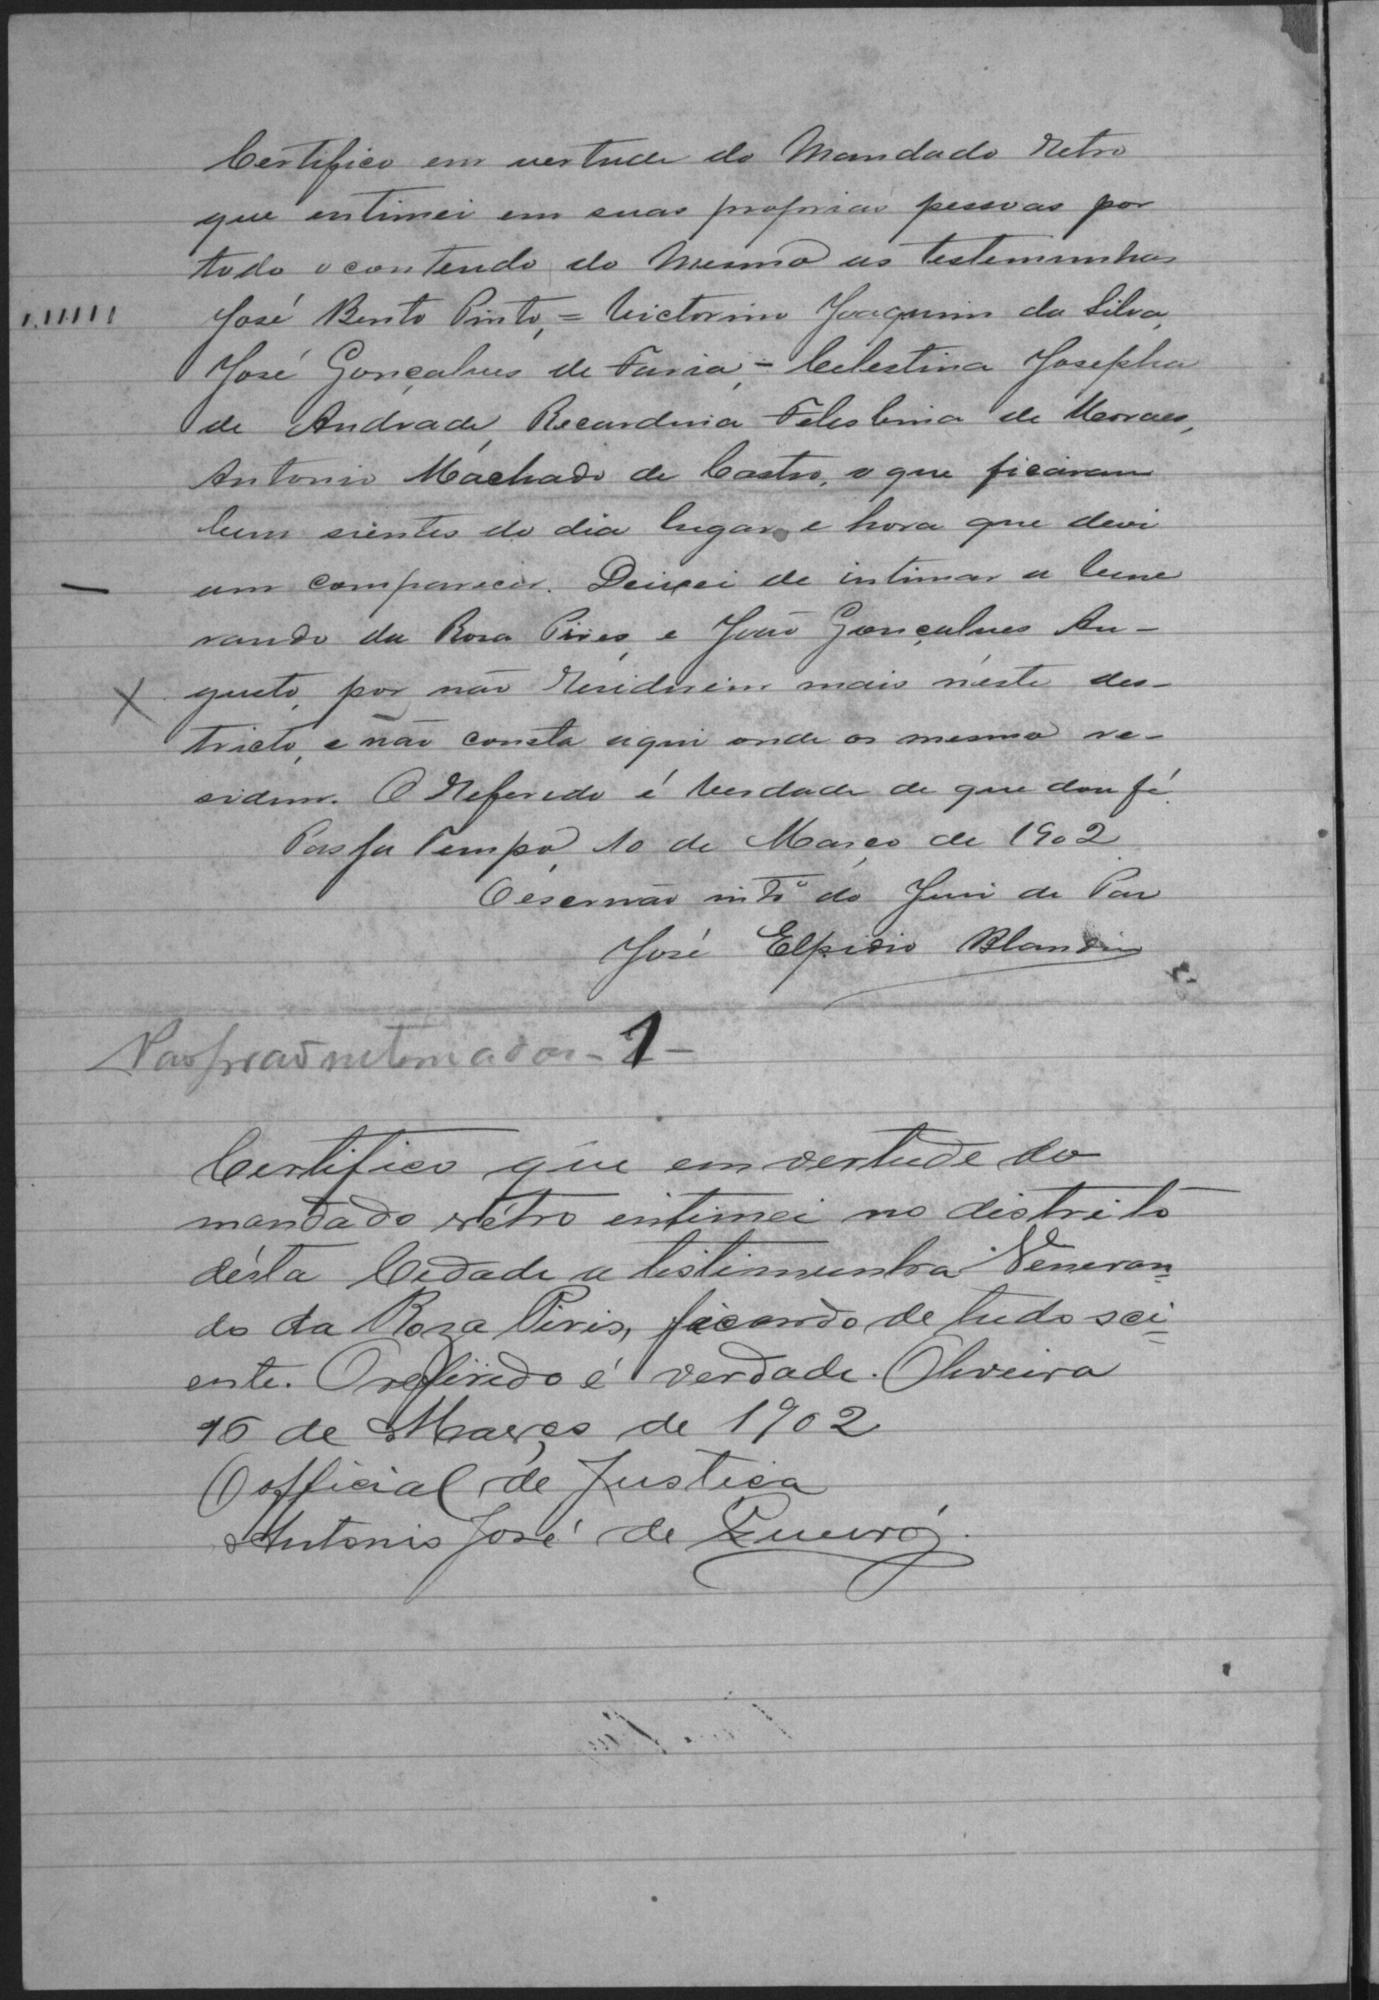 Certifico em vertude do Mandado Retro
que entimei em suas proprias pessoas por
todo o contendo do Mesmo as testemunhas
José Bento Pinto, = Victorino Joaquim da Silva,
José Gonçalves de Faria, - Celestina Josepha
de Andrade, Recardina Felesbina de Moraes,
Antonio Machado de Castro, o que ficaram
bem sientes do dia lugar e hora que devi
am comparecer. Deixei de intimar a Vene
rando da Roza Pires, e João Gonçalves Au-
gusto, por não Residirem mais néste des-
tricto, e não consta aqui onde os mesmo re-
sidem. O Referido é Verdade de que dou fé
Passa Tempo, 10 de Março de 1902
O escrivão intº do Juri de Paz
José Elpidio Blandin
Não forão intimados - 1 -
Certifico que em vertude do
mandado rétro intimei no distrito
désta Cidade a testimunha Veneran=
do da Roza Piris, ficando de tudo sci=
ente. O refirido é verdade. Oliveira
16 de Março de 1902
O official de Justiça
Antonio José de Queiróz.